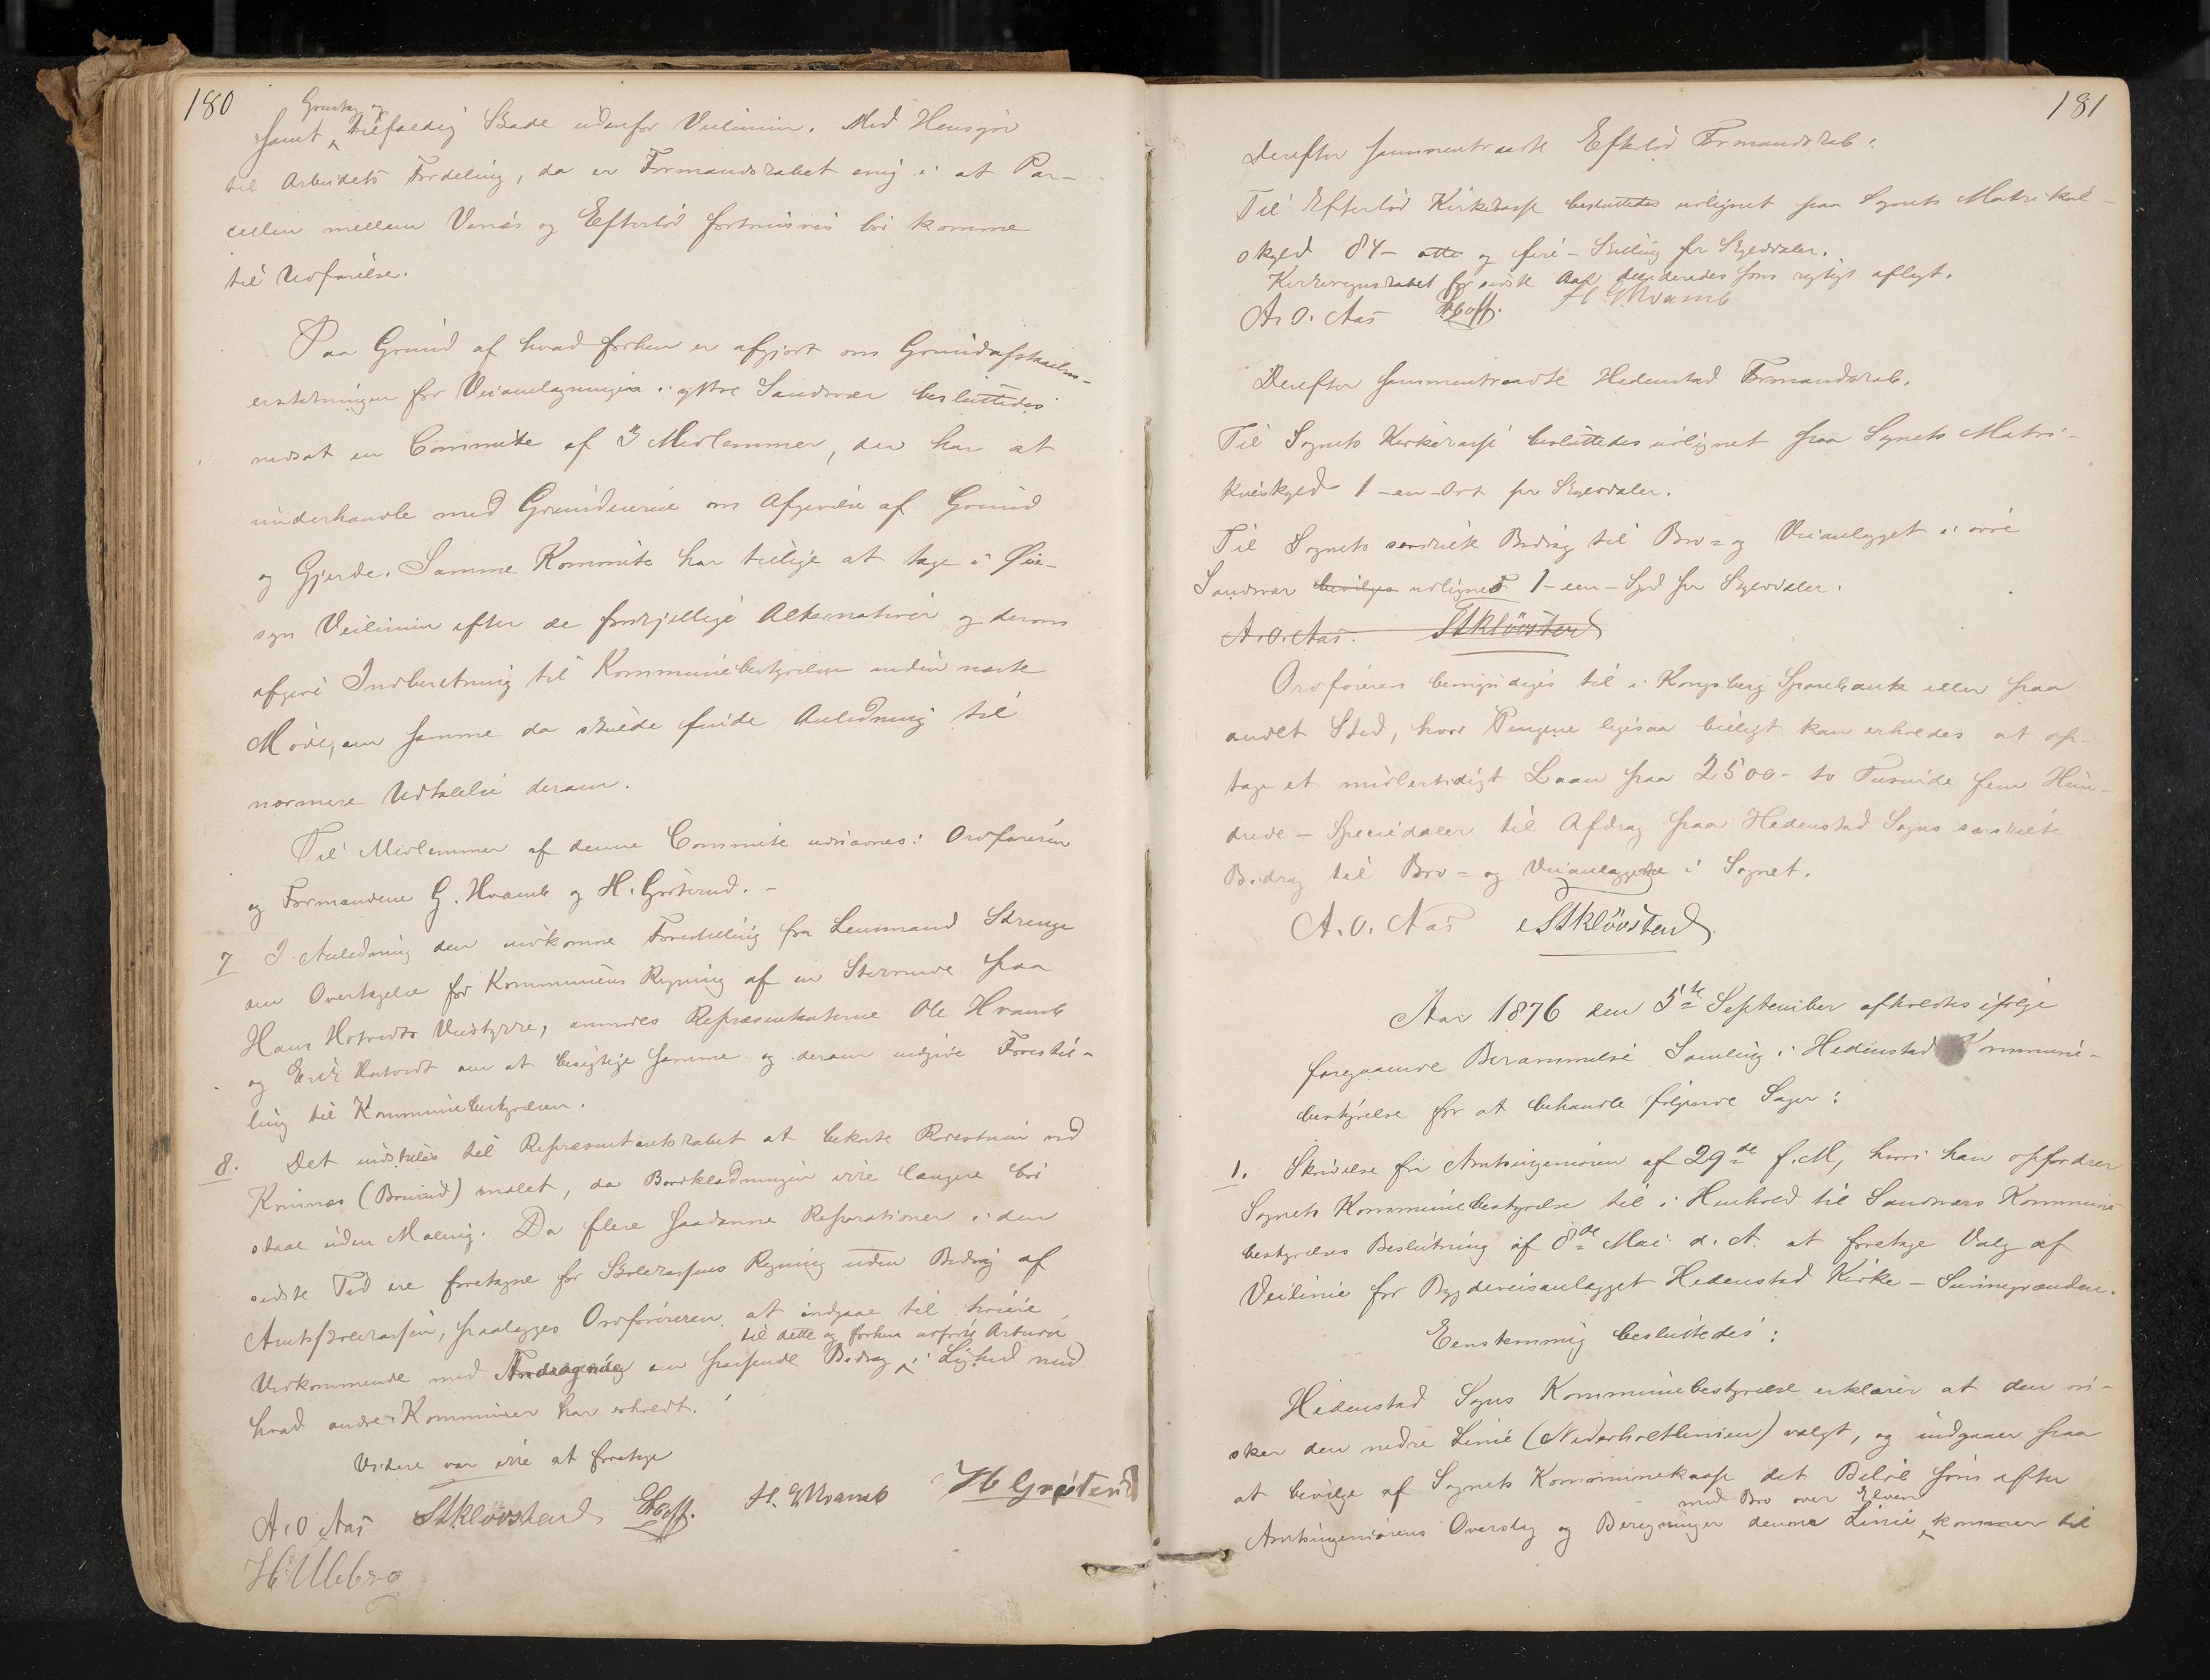 180
Grustag og
samt tilfældig Skade udenfor Veilinien. Med Hensyn
til Arbeidets Fordeling, da er Formandskabet enig i at Par-
cellen mellem Venås og Efteløt fortrinsvis bør komme
til Udførelse.
Paa Grund af hvad forhen er afgjort om Grundafstaaelses-
erstatningen for Veianlægningen i yttre Sandsvær besluttedes
nedsat en Commite af 3 Medlemmer, der har at
underhandle med Grundeierne om Afgivelse af Grund
og Gjerde. Samme Kommite har tillige at tage i Øie-
syn Veilinien efter de forskjellige Alternativer og derom
afgive Indberetning til Kommunebestyrelsen inden næste
Møde, om samme da skulde finde Anledning til
nærmere Udtalelse derom.
Til Medlemmer af denne Commite udnævnes: Ordføreren
og Formændene G. Hvamb og H. Grøterud. -
7 I Anledning den indkomne Forestilling fra Lensmand Strenge
om Overtagelse for Kommunens Regning af en Steenmur paa
Hans Hotvedts Veistykke, anmodes Repræsentanterne Ole Hvamb
og Erik Hotvedt om at besigtige samme og derom indgive Forestil-
ling til Kommunebestyrelsen.
8. Det indstilles til Repræsentantskabet at bekoste Kvestum ved
(Bruerud) malet, da Bordklædningen ikke længere bør
staae uden Maling. Da flere saadanne Reparationer i den
sidste Tid ere foretagne for Skolekassens Regning uden Bidrag af
Amtsskolekassen, paalægges Ordføreren at indgaae til høiere
til dette og forhen udførte Arbeider
Vedkommende med Andragende om passende Bidrag i Lighed med
hvad andre Kommuner har erholdt.
Videre var ikke at foretage
A. O. Aas StKlövstad Hoff. H. G Hvamb H Grøterud
H Ulleberg
181
Derefter sammentraadte Efteløt Formandskab:
Til Efteløt Kirkekasse besluttedes udlignet paa Sognets Matrikul-
skyld 84 - otte og fire - Skilling pr Skylddaler.
Kirkeregnskabet for sidste Aar decideredes som rigtigt aflagt.
A. O. Aas Hoff. H G Hvamb
Derefter sammentraadte Hedenstad Formandskab.
Til Sognets Kirkekasse besluttedes udlignet paa Sognets Matri-
kulskyld 1 - en - Ort pr Skylddaler.
Til Sognets særskilte Bidrag til Bro- og Veianlægget i øvre
Sandsvær bevilges udlignet 1 - een - Spd pr Skylddaler.
A. O. Aas. StKlövstad
Ordføreren bemyndiges til i Kongsberg Sparebank eller paa
andet Sted, hvor Pengene ligesaa billigt kan erholdes at op-
tage et midlertidigt Laan paa 2500 - to Tusinde fem Hun-
drede - Speciedaler til Afdrag paa Hedenstad Sogns særskilte
Bidrag til Bro- og Veianlæggene i Sognet.
A. O. Aas StKlövstad
Aar 1876 den 5te September afholdtes ifølge
foregaaende Berammelse Samling i Hedenstad Kommune-
bestyrelse for at behandle følgende Sager:
1. Skrivelse fra Amtsingeniøren af 29de f. M, hvori han opfordrer
Sognets Kommunebestyrelse til i Henhold til Sandsværs Kommune-
bestyrelses Beslutning af 8de Mai d. A. at foretage Valg af
Veilinie for Bygdeveisanlægget Hedenstad Kirke -
Eenstemmig besluttedes:
Hedenstad Sogns Kommunebestyrelse erklærer at den øn-
sker den nedre Linie (Nederholtlinien) valgt, og indgaaer paa
at bevilge af Sognets Kommunekasse det Beløb som efter
med Bro over Elven
Amtsingeniørens Overslag og Beregninger denne Linie kommer til